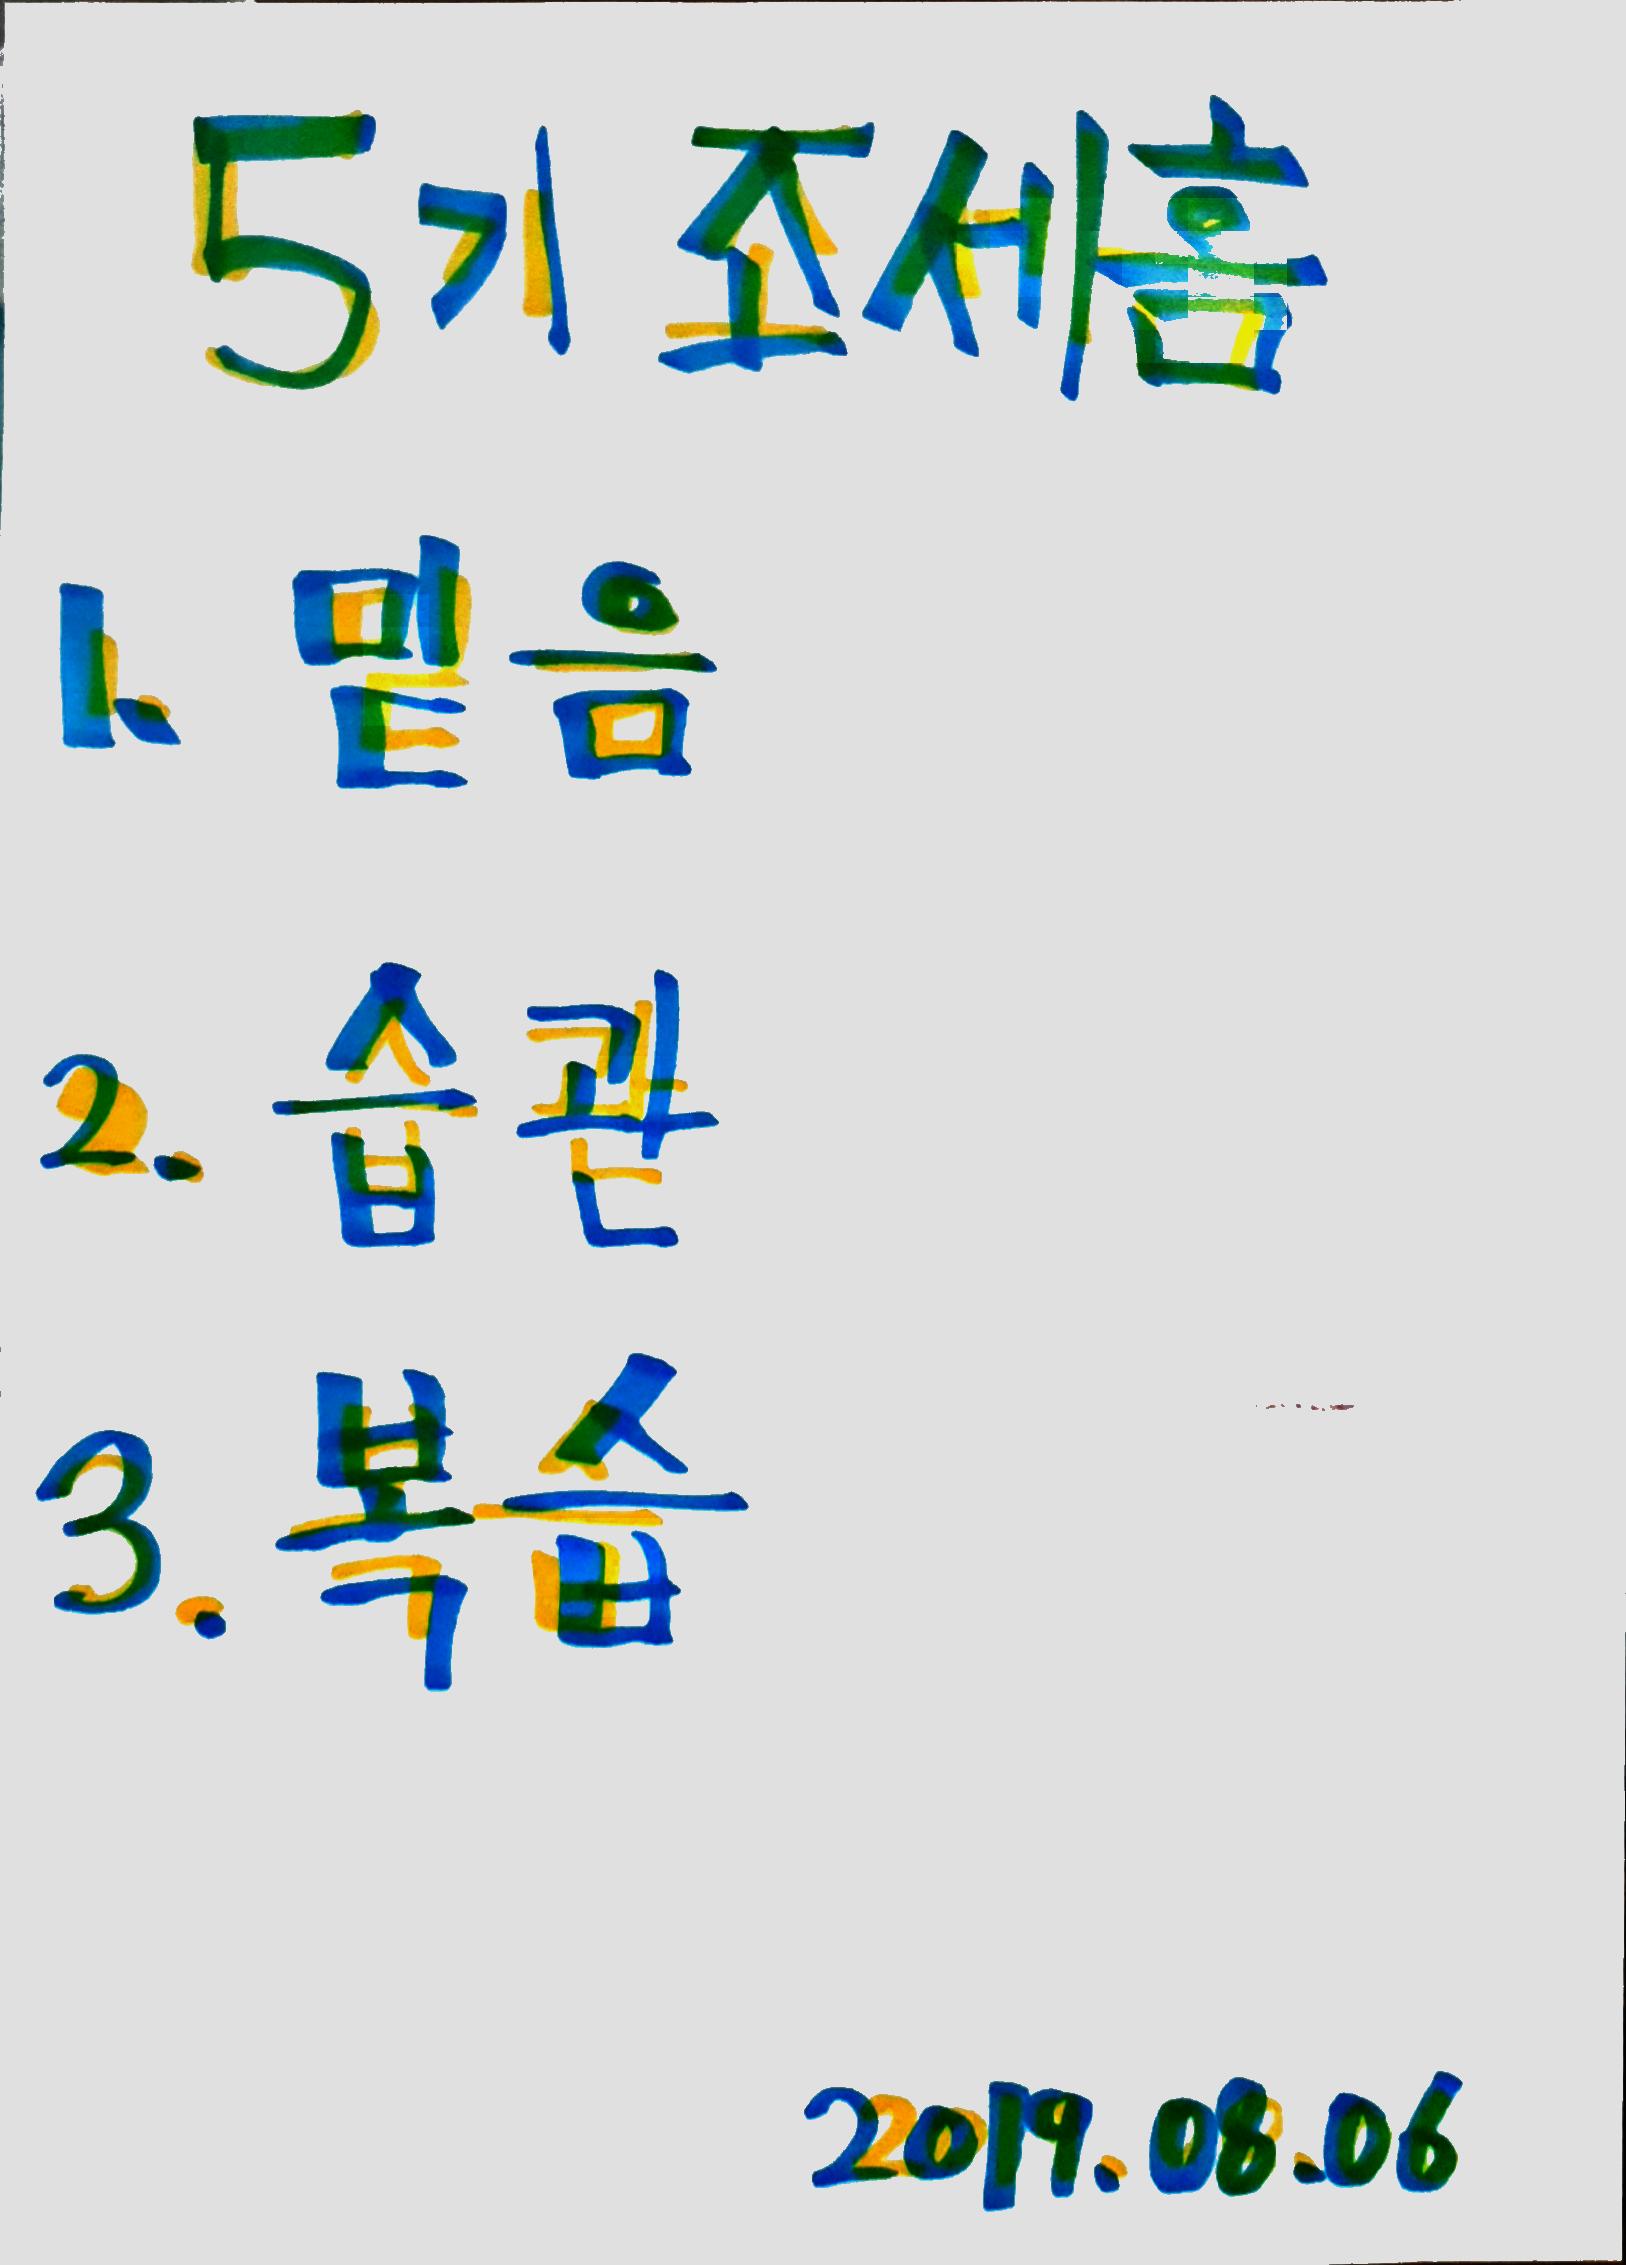 5기 조세흠
1. 믿음
2. 습관
3. 복습
2019.08.06